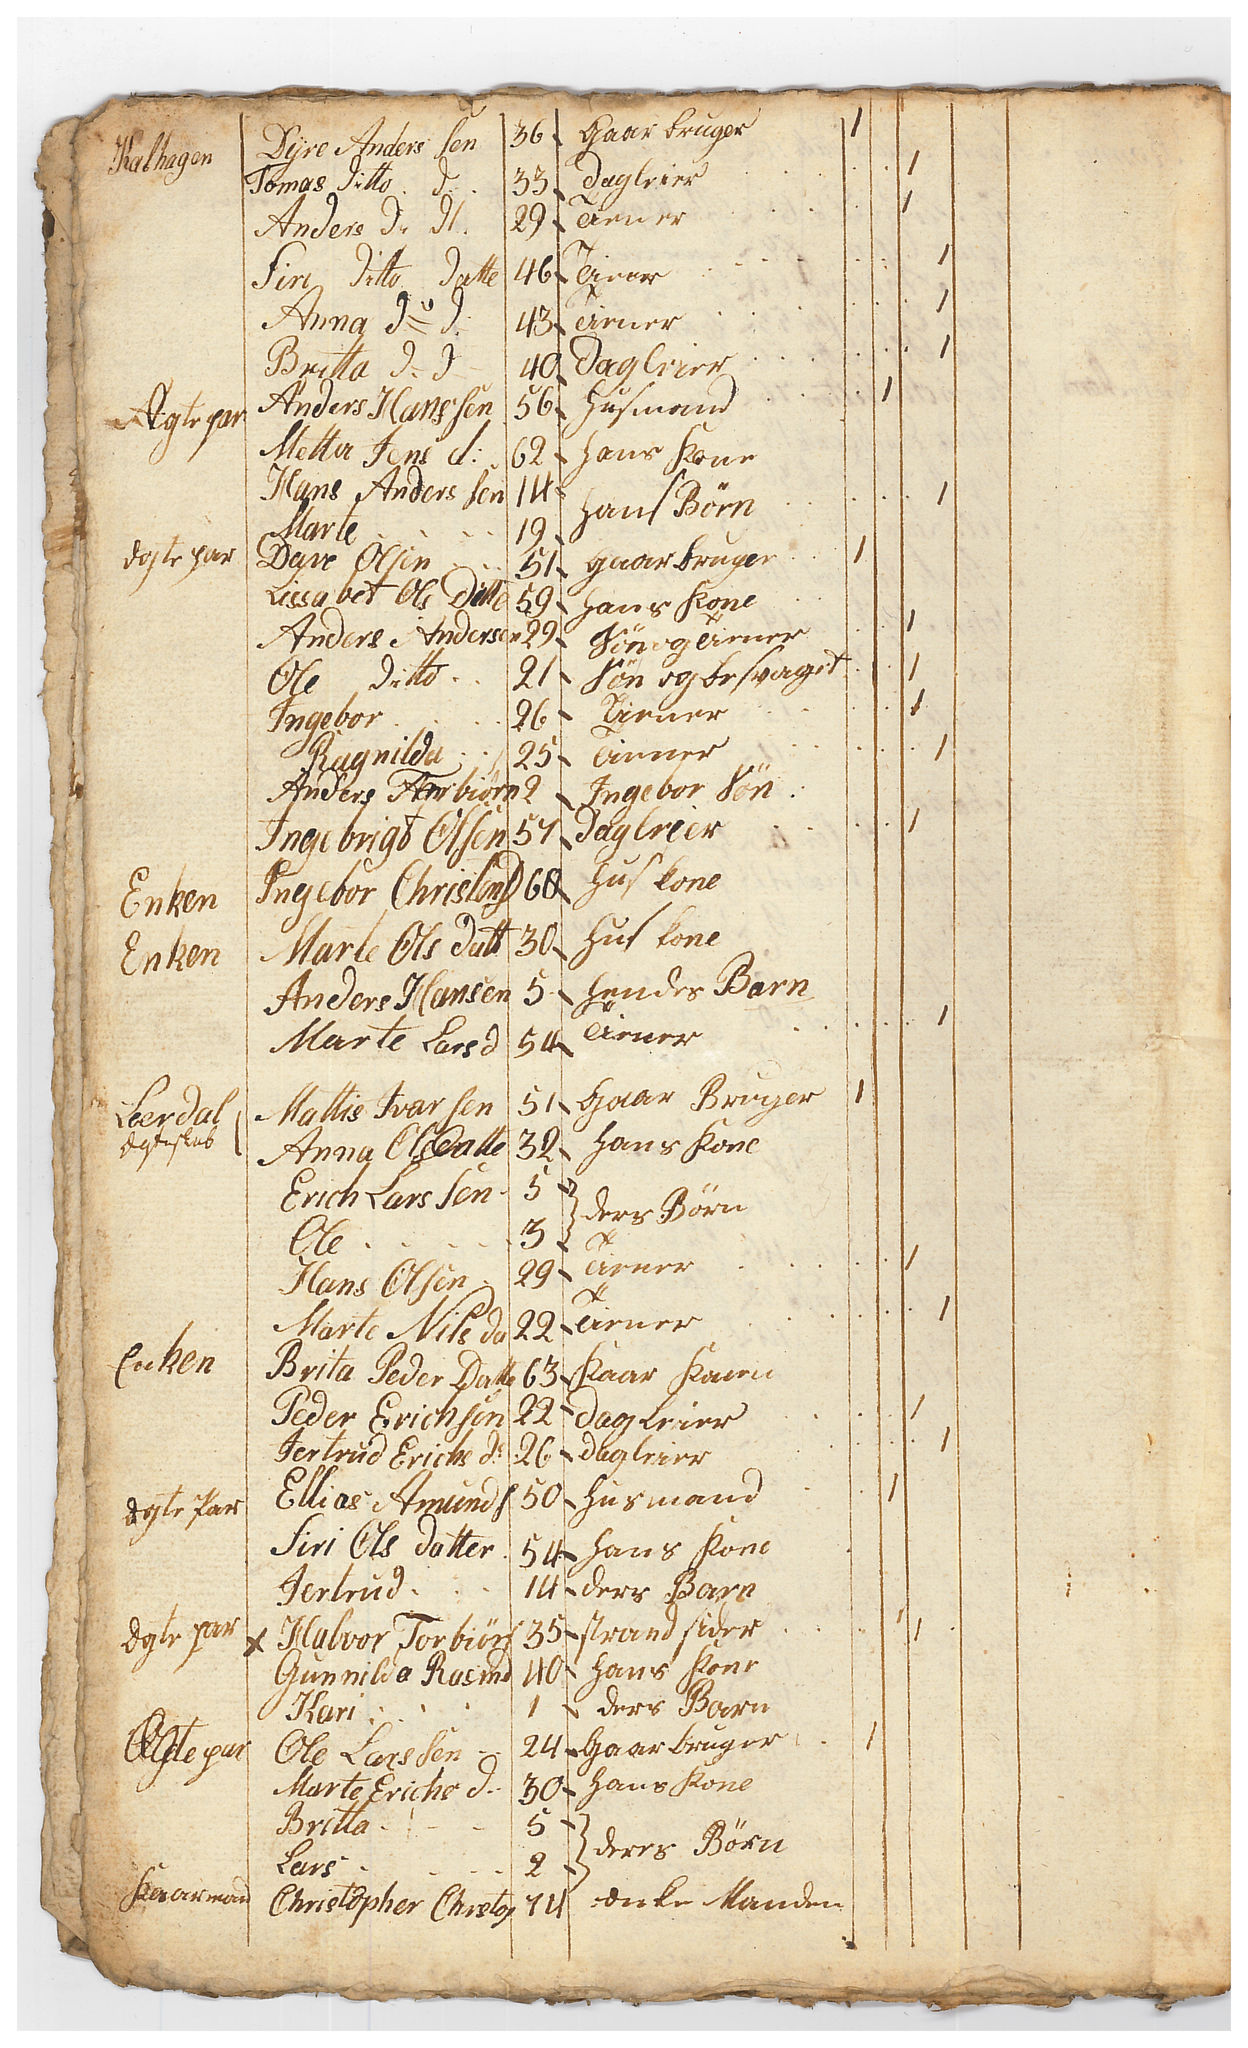 Kalhagen Dyre Anders sen 36 Gaar bruger 1
Tomas ditto d. 33 Dagleier 1
Anders d. d. 29 Tiener 1
Siri ditto datte 46 Tiener 1
Anna do d: 43 Tiener 1
Britta d. d 40 Dagleier 1
Ægte par Anders Hanssen 56 Husmand 1
Metta Jens d: 62 hans Kone
Hans Anders sen 14 hans Börn 1
Marte 19
Ægte par Dyre Olsen 51 gaar bruger 1
Lissabet Ols Datte 59 hans Kone
Anders Andersen 29 Sön og tiener 1
Ole ditto 21 Sön og besvaget 1
Ingebor 26 Tiener 1
Ragnilda 25 Tienner 1
Anders Torbiörn 2 Ingebor Sön
Ingebrigt Olsen 57 Dagleier 1
Enken Ingebor Christens D 68 Hus kone
Enken Marte Ols datt 30 Hus kone
Anders Hansen 5 hendes Barn
Marte Lars d 54 Tiener 1
Leerdal Mattis Ivar sen 51 Gaar Bruger 1
Ægteskab Anna Olsdatte 32 hans Kone
Erich Lars sen 5 } ders Börn
Ole 3
Hans Olsen 29 Tiener 1
Marte Nils da 22 Tiener 1
Enken Brita Peder Datte 63 Kaar Kaaen
Peder Erichsen 22 dagleier 1
Jertrud Erichs d: 26 dagleier 1
Ægte Par Ellias Amunds 50 Husmand 1
Siri Ols datter 54 hans Kone
Jertrud 14 ders Barn
Ægte par x Halvor Torbiörs 35 strandsider 1 1
Gunnilda Rasmd 40 hans Kone
Kari 1 ders Barn
Ægte par Ole Lars sen 24 Gaar bruger 1
Marte Erichs d. 30 hans Kone
Britta 5 } deres Börn
Lars 2
Kaarmand Christopher Christop 74 Enke Manden